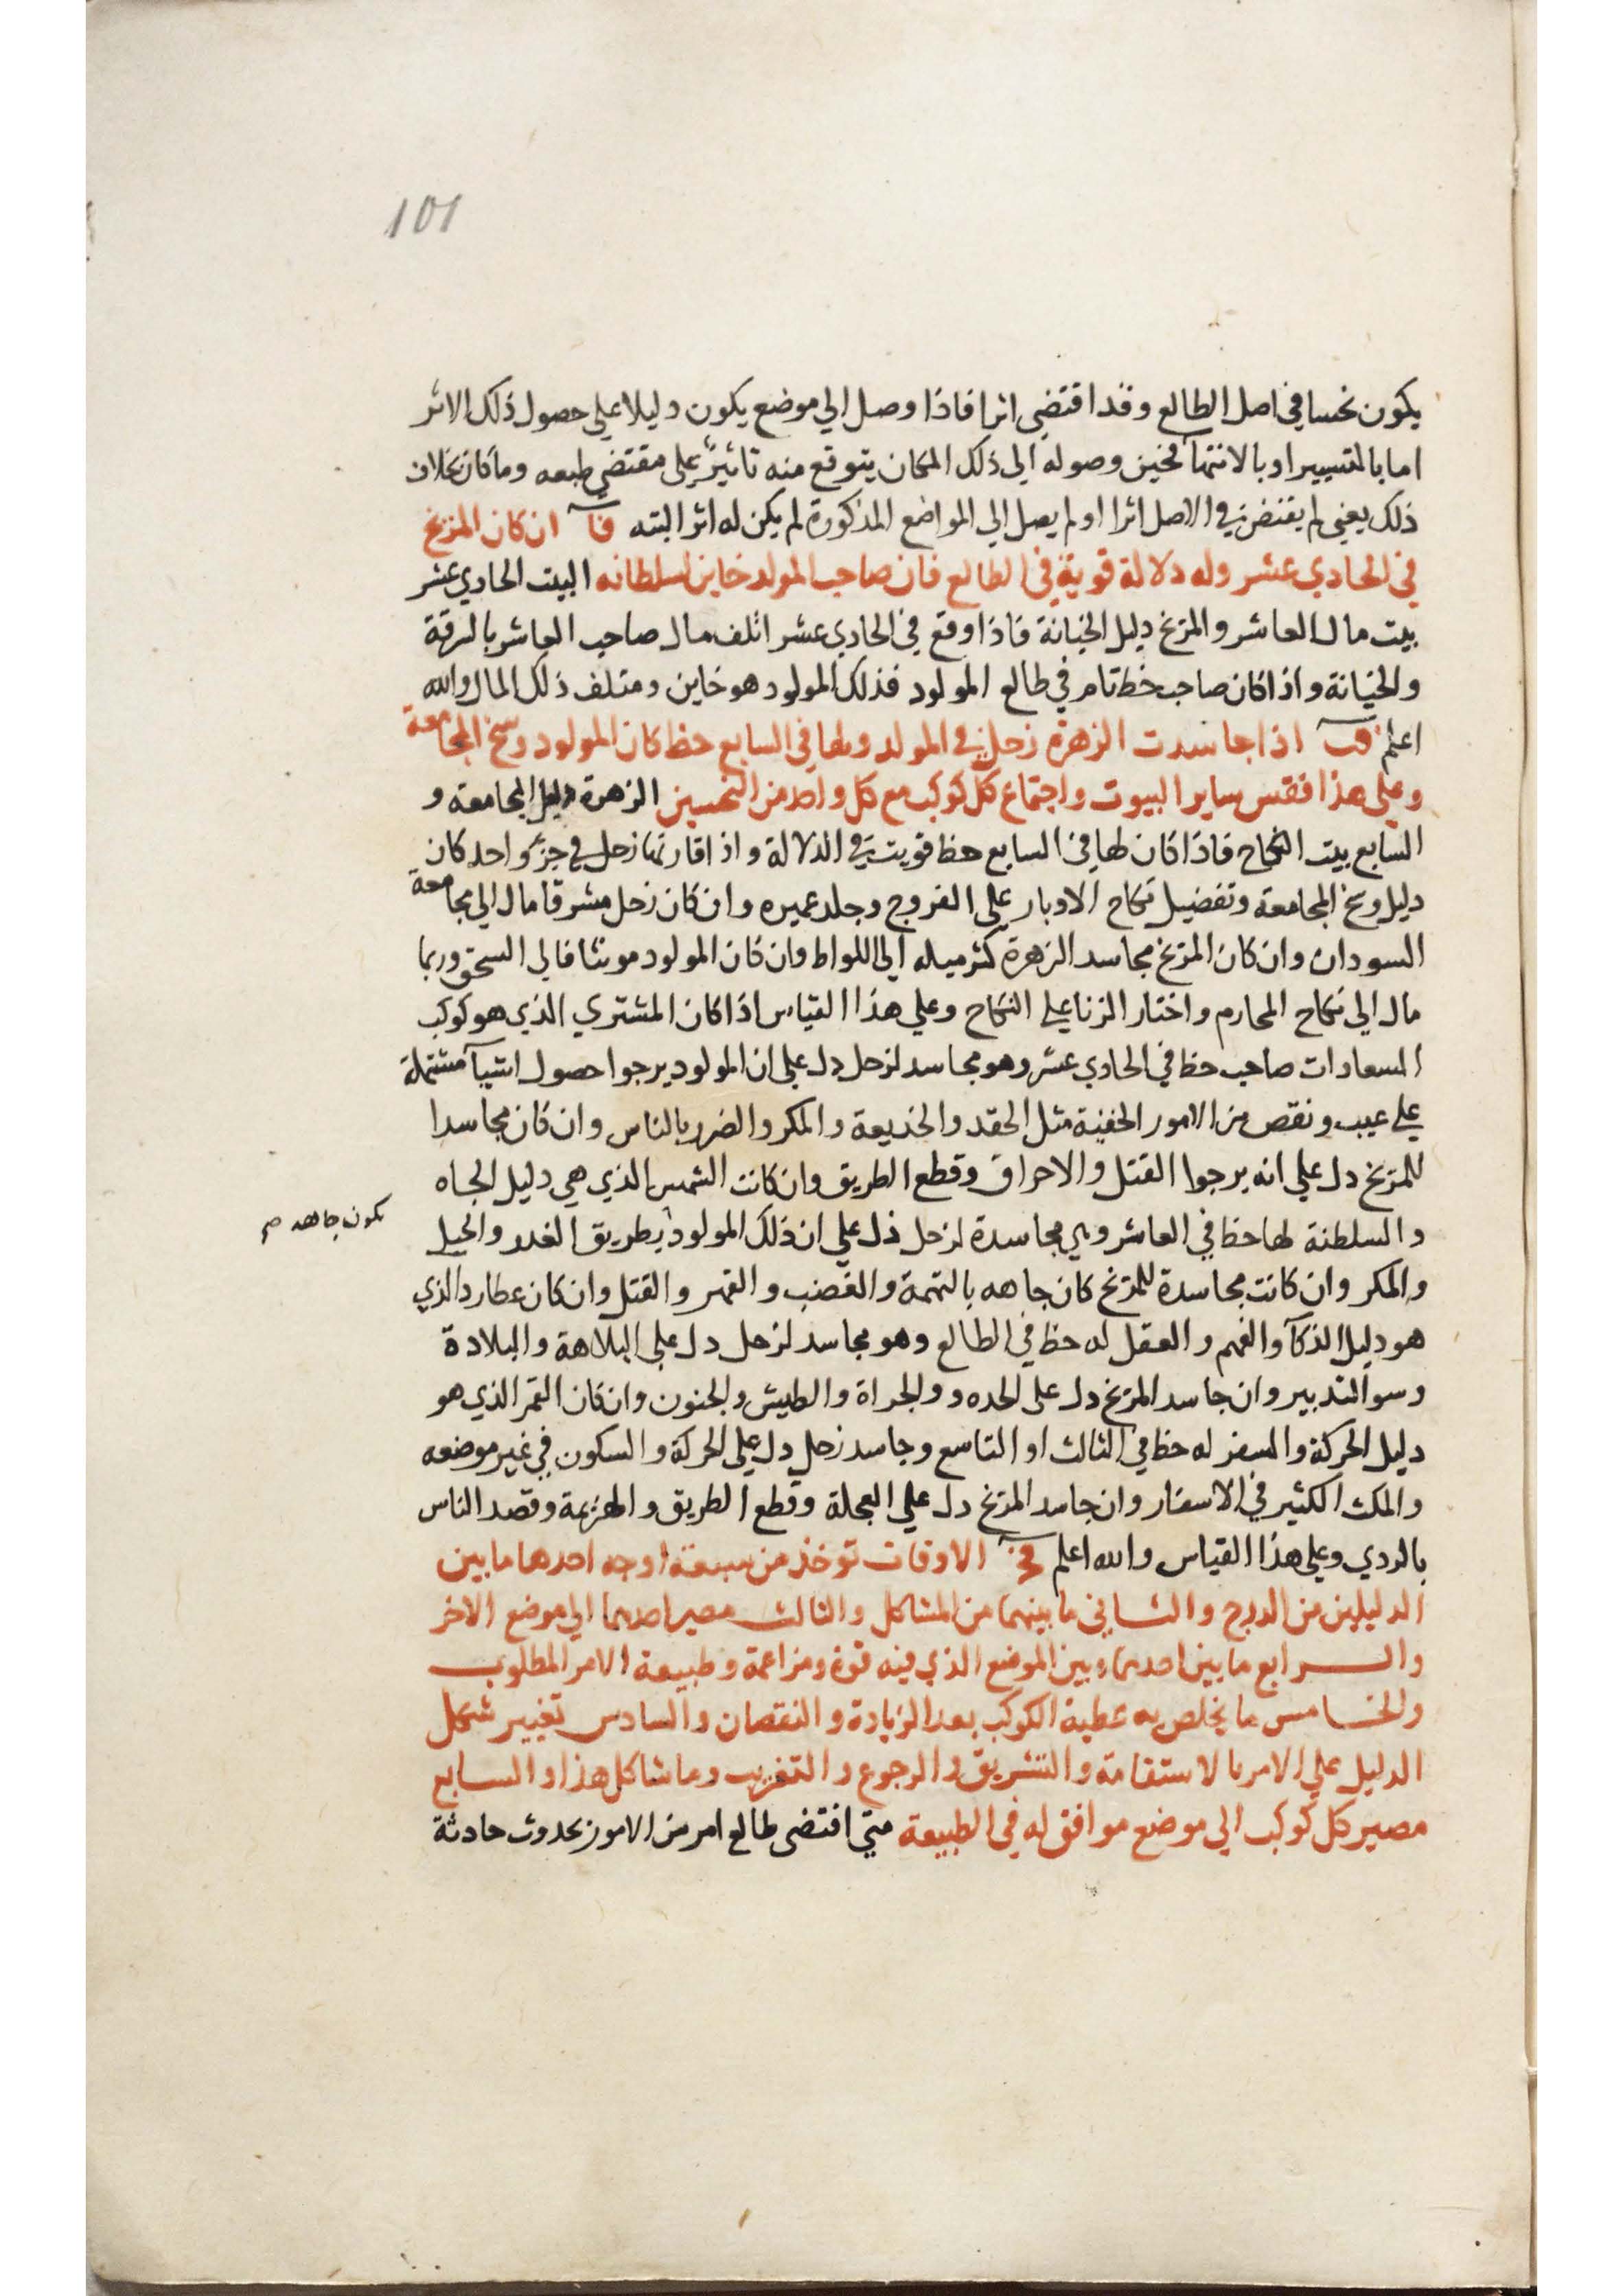 101
يكون نحسا في اصل الطالع وقد اقتضي اثرا فاذا وصل الي موضع يكون دليلا علي حصول ذلك الاثر
اما بالتسيير او بالانتهآ فحين وصوله الي ذلك المكان يتوقع منه تاثيرٌ علي مقتضي طبعه وما كان بخلاف
ذلك يعني لم يقتض في الاصل اثرا او لم يصل الي المواضع المذكورة لم يكن له اثر البته قآ ان كان المريخ
في الحادي عشر وله دلالة قوية في الطالع فان صاحب المولد خاين لسلطانه البيت الحادي عشر
بيت مال العاشر والمريخ دليل الخيانة فاذا وقع في الحادي عشر اتلف مال صاحب العاشر بالسرقة
والخيانة واذا كان صاحب حظ تام في طالع المولود فذلك المولود هو خاين ومتلف ذلك المال والله
اعلم قب اذا جاسدت الزهرة زحل في المولد ولها في السابع حظ كان المولود وسخ المجامعة
وعلي هذا فقس ساير البيوت واجتماع كل كوكب مع كل واحد من النحسين الزهرة دليل المجامعة و
السابع بيت النكاح فاذا كان لها في السابع حظ قويت في الدلالة واذا قارنها زحل في جزء واحد كان
دليل وسخ المجامعة وتفضيل نكاح الادبار علي الفروج وجلد عميره وان كان زحل مشرقا مال الي مجامعة
السودان وان كان المريخ مجاسد الزهرة كثر ميله الي اللواط وان كان المولود مونثا فالي السحق وربما
مال الي نكاح المحارم واختار الزنا علي النكاح وعلي هذا القياس اذا كان المشتري الذي هو كوكب
السعادات صاحب حظ في الحادي عشر وهو مجاسد لزحل دل علي ان المولود يرجوا حصول اشيآ مشتملة
علي عيب ونقص من الامور الخفية مثل الحقد والخديعة والمكر والضرر بالناس وان كان مجاسدا
للمريخ دل علي انه يرجوا القتل والاحراق وقطع الطريق وان كانت الشمس الذي هي دليل الجاه
والسلطنة لها حظ في العاشر وهي مجاسدة لزحل دل علي ان ذلك المولود بطريق الغدر والحيل
يكون جاهه صح
والمكر وان كانت مجاسدة للمريخ كان جاهه بالتهمة والغضب والقهر والقتل وان كان عطارد الذي
هو دليل الذكآ والفهم والعقل له حظ في الطالع وهو مجاسد لزحل دل علي البلاهة والبلادة
وسو التدبير وان جاسد المريخ دل علي الحده والجراة والطيش والجنون وان كان القمر الذي هو
دليل الحركة والسفر له حظ في الثالث او التاسع وجاسد زحل دل علي الحركة والسكون في غير موضعه
والمكث الكثير في الاسفار وان جاسد المريخ دل علي العجلة وقطع الطريق والهزيمة وقصد الناس
بالردي وعلي هذا القياس والله اعلم قج الاوقات توخذ من سبعة اوجه احدها ما بين
الدليلين من الدرج والثاني ما بينهما من المشاكل والثالث مصير احدهما الي موضع الاخر
والرابع ما بين احدهما وبين الموضع الذي فيه قوة ومزاعمة وطبيعة الامر المطلوب
والخامس ما يخلص به عطية الكوكب بعد الزيادة والنقصان والسادس تغيير شكل
الدليل علي الامر بالاستقامة والتشريق والرجوع والتغريب وما شاكل هذا والسابع
مصير كل كوكب الي موضع موافق له في الطبيعة متي اقتضى طالع امر من الامور بحدوث حادثة